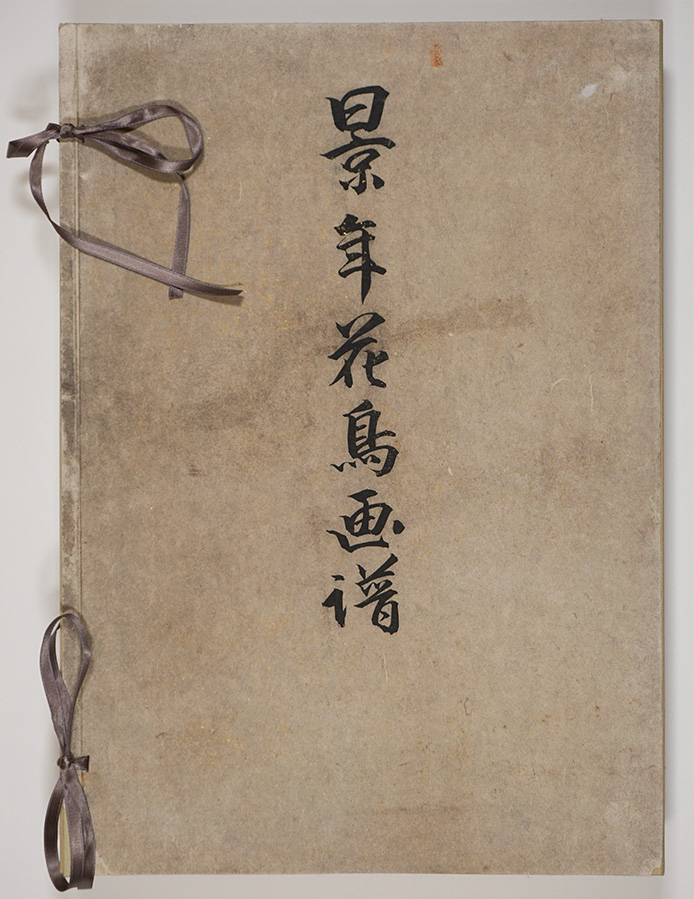 景年花鳥画譜